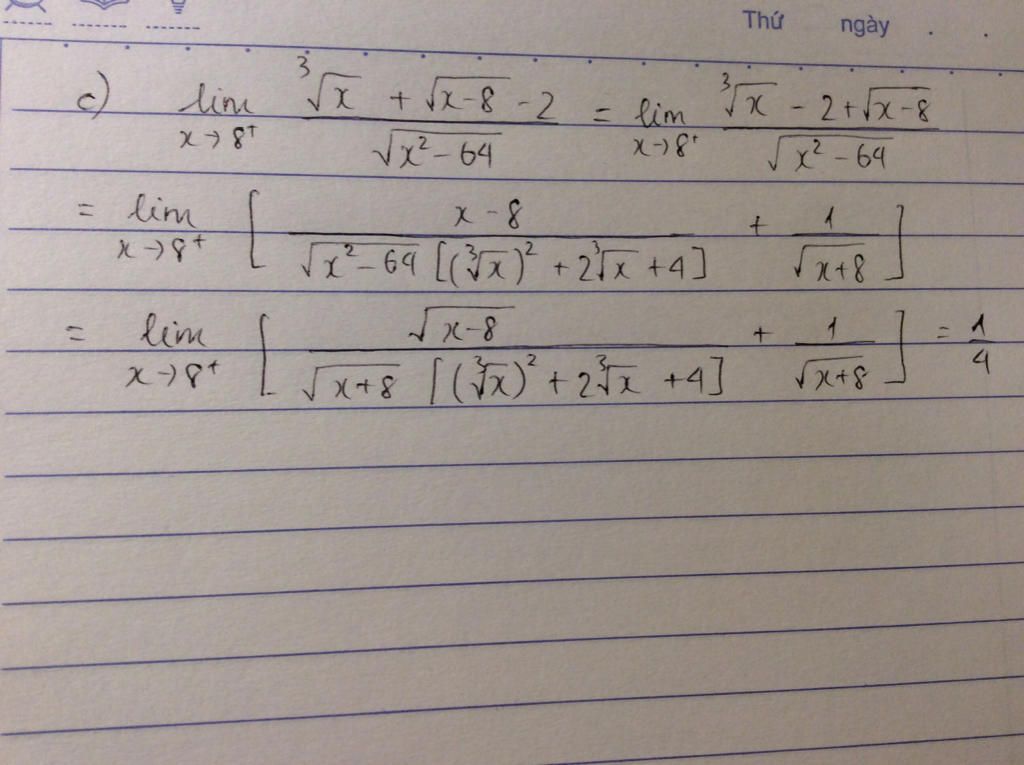 Thứ ngày . .
c) lim x→8⁺ (∛x + √(x-8) - 2)/√(x²-64) = lim x→8⁺ (∛x - 2 + √(x-8))/√(x²-64)
= lim x→8⁺ [ (x-8)/(√(x²-64) [(∛x)² + 2∛x + 4]) + 1/√(x+8) ]
= lim x→8⁺ [ √(x-8)/(√(x+8) [(∛x)² + 2∛x + 4]) + 1/√(x+8) ] = 1/4